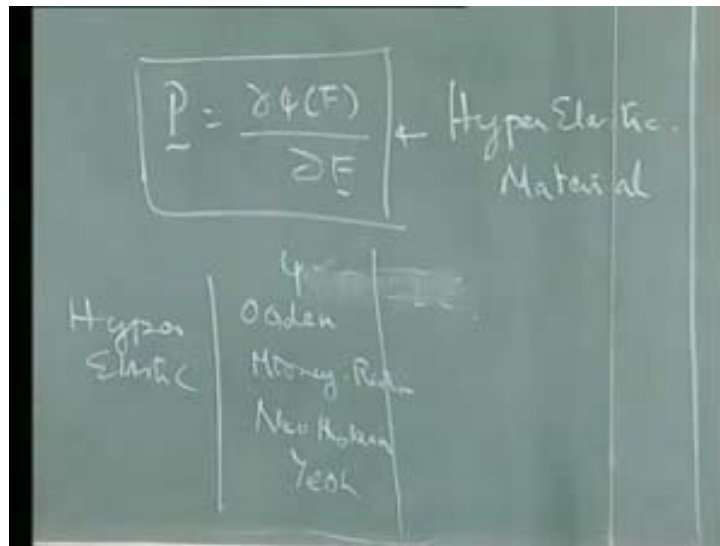 P = ∂ψ(F) / ∂F ← Hyper Elastic.
Material
ψ
Hyper Elastic
Ogden
Mooney-
Neo Hookean
Yeoh